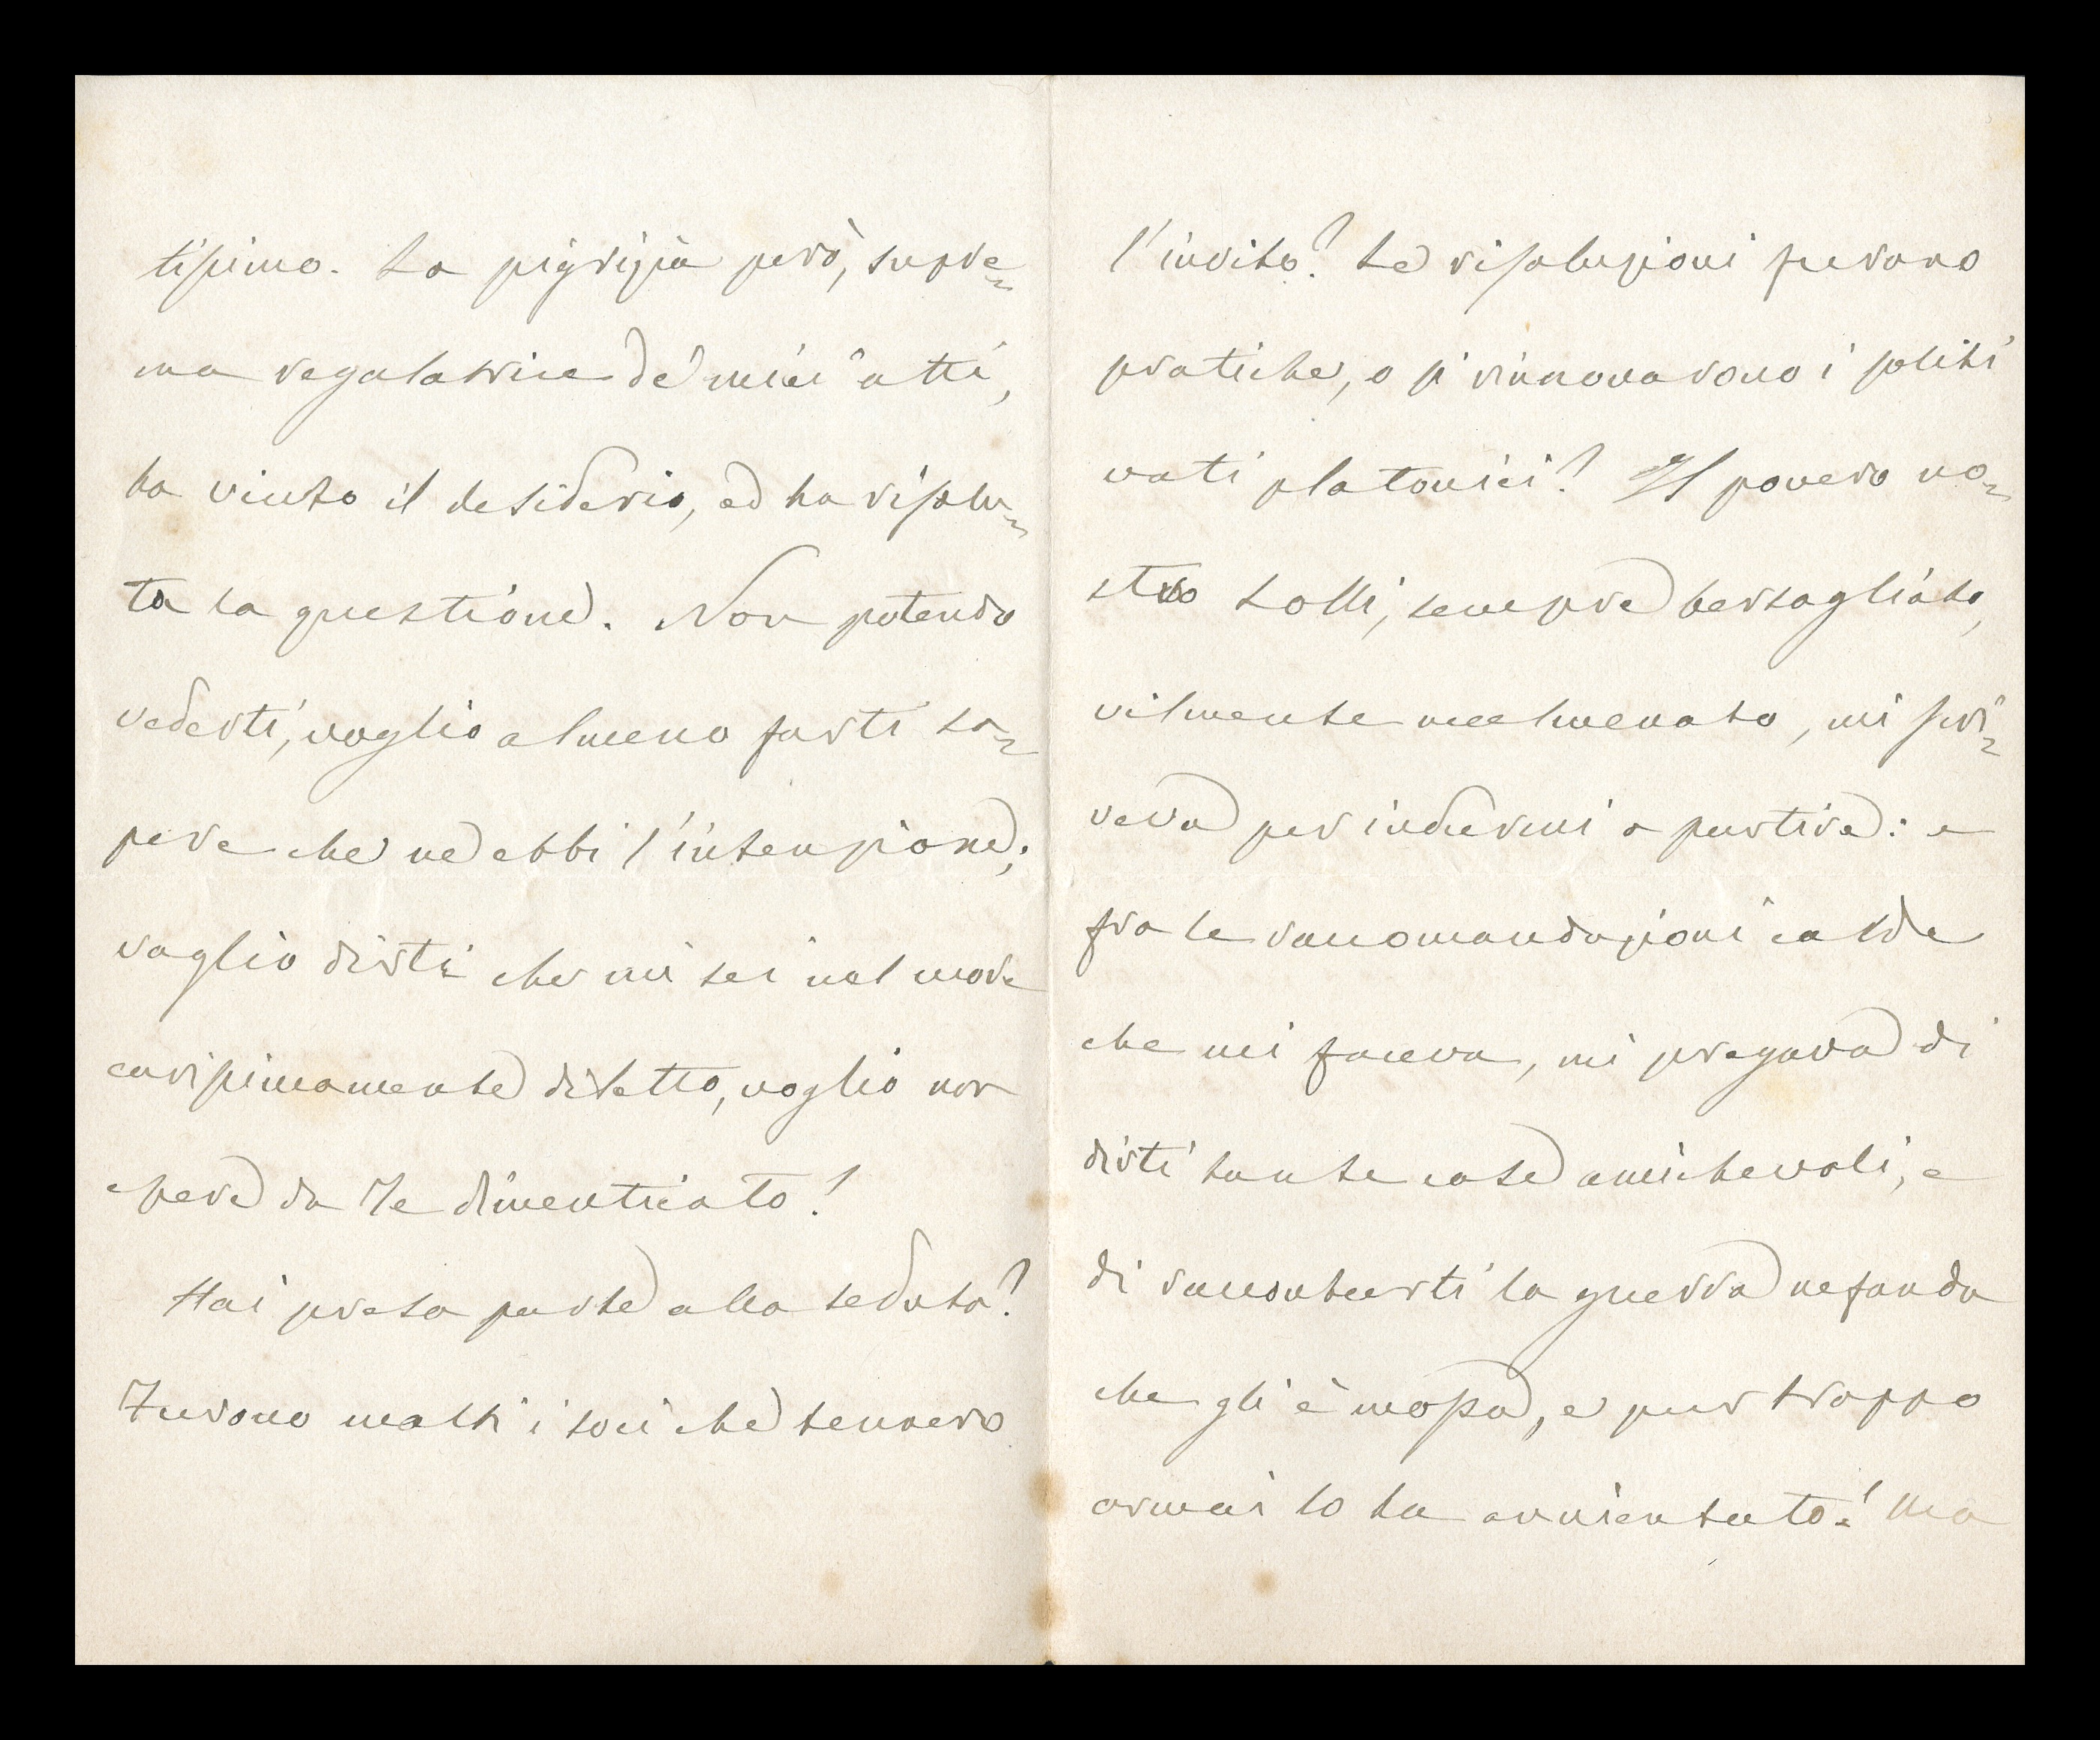 tissimo. La pigrizia però, supre=
ma regolatrice de' miei atti,
ha vinto il desiderio, ed ha risolu=
ta la questione. Non potendo
vederti, voglio almeno farti sa=
pere che ne ebbi l'intenzione;
voglio dirti che mi sei nel core
carissimamente diletto, voglio non
essere da Te dimenticato!
Hai preso parte alla seduta?
Furono molti i soci che tennero
l'invito? Le risoluzioni furono
pratiche, o si rinnovarono i soliti
voti platonici? Il povero no=
stro Lolli, sempre bersagliato,
vilmente malmenato, mi scri=
veva per indurmi a partire: e
fra le raccomandazioni calde
che mi faceva, mi pregava di
dirti tante cose amichevoli, e
di raccontarti la guerra nefanda
che gli è mossa, e pur troppo
ormai lo ha annientato! Ma